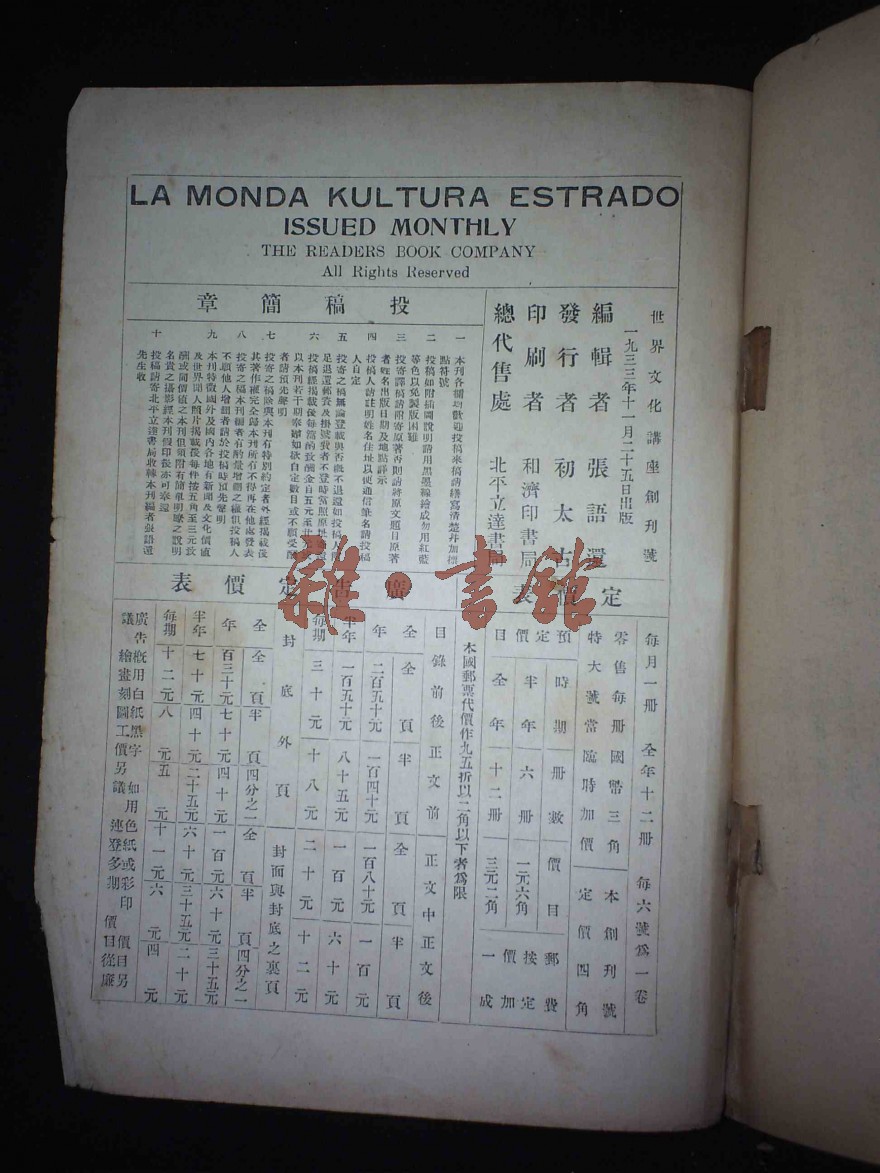 LA MONDA KULTURA ESTRADO
ISSUED MONTHLY
THE READERS BOOK COMPANY
All Rights Reserved
世界文化講座創刊號
一九三三年十一月二十五日出版
編輯者 張語還
發行者 初太古
印刷者 和濟印書局
總代售處 北平立達書局
投稿簡章
一 本刊各欄均歡迎投稿來稿請繕寫清楚幷加標
點符號
二 投稿如附插圖說明請用黑墨線繪成勿用紅藍
等色以免製版困難
三 投寄譯稿請附寄原著否則請將原文題目原著
者姓名出版日期及地點詳示
四 投稿人請註明姓名住址以便通信筆名請投稿
人自定
五 投寄之稿無論登載與否概不退還如投稿人
足退還郵資及掛號費者不登時當照原址
六 投稿經揭載後每篇酌致酬金自五元至
以本刊若干期奉酬如欲自定數目或不願受酬
者請預先聲明
七 投寄之稿除與本刊有特別約定者外經揭載後
其著作權完全歸本刊所有不得再在他處發表
八 投寄之稿本刊編者有酌量增刪之權但投稿人
不願他人增刪者請於投稿時預先聲明
九 本刊特徵國外及國內各地有新聞及文化價值
及世界聞人照片揭載後每件棱五角至三元致
酬或同價值之本刊但須附有簡單明瞭之說明
名貴之攝影經本刊假印後亦可奉還
十 投稿請寄北平立達書局收轉本刊編者張語還
先生收
定價表
每月一冊 全年十二冊 每六號為一卷
零售每冊國幣三角 本創刊號
特大號當臨時加價 定價四角
預定價目
時期 冊數 價目 郵費
半年 六冊 一元六角 按定
全年 十二冊 三元二角 價加一成
本國郵票代價作九五折以二角以下者為限
廣告定價表
目錄前後正文前 正文中正文後
全頁 半頁 全頁 半頁
全年 二百五十元 一百四十元 一百八十元 一百元
半年 一百五十元 八十五元 一百元 六十元
每期 三十元 十八元 二十元 十二元
封底外頁 封面與封底之裏頁
全頁 半頁 四分之一 全頁 半頁 四分之一
全年 百三十元 七十元 四十元 一百元 六十元 三十五元
半年 七十元 四十元 二十五元 六十元 三十五元 二十元
每期 十二元 八元 五元 十一元 六元 四元
廣告概用白紙黑字 如用色紙或彩印 價目另
議 繪畫刻圖工價另議 連登多期 價目從廉
雜·書館